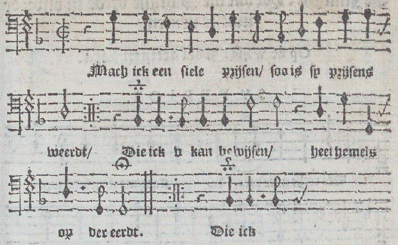 Mach ick een siele prijsen/ soo is sy prijsens
weerdt/ Die ick v kan bewijsen/ heel hemels
op der eerdt. Die ick